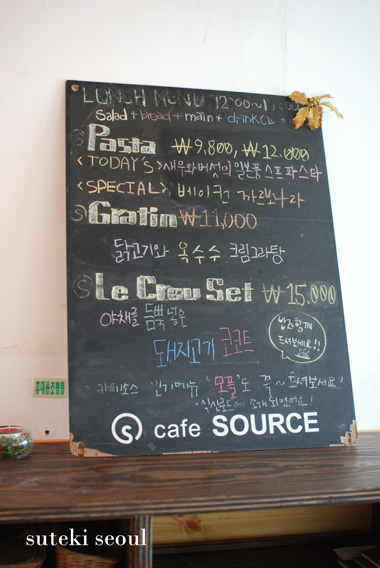 LUNCH MENU 12:00~
Salad + bread + main + drink
Pasta ₩9,800, ₩12,000
<TODAY'S> 새우와버섯의 일본풍 스프파스타
<SPECIAL> 베이컨 까르보나라
Gratin ₩11,000
닭고기와 옥수수 크림그라탕
Le Creu Set ₩15,000
야채를 듬뿍 넣은
돼지고기 코코트
밥과 함께
드셔보세요!!
카페소스 인기메뉴 "모플"도 꼭~ 드셔보세요!
식신로드에 소개되었어요!
cafe SOURCE
휴대용조명등
suteki seoul